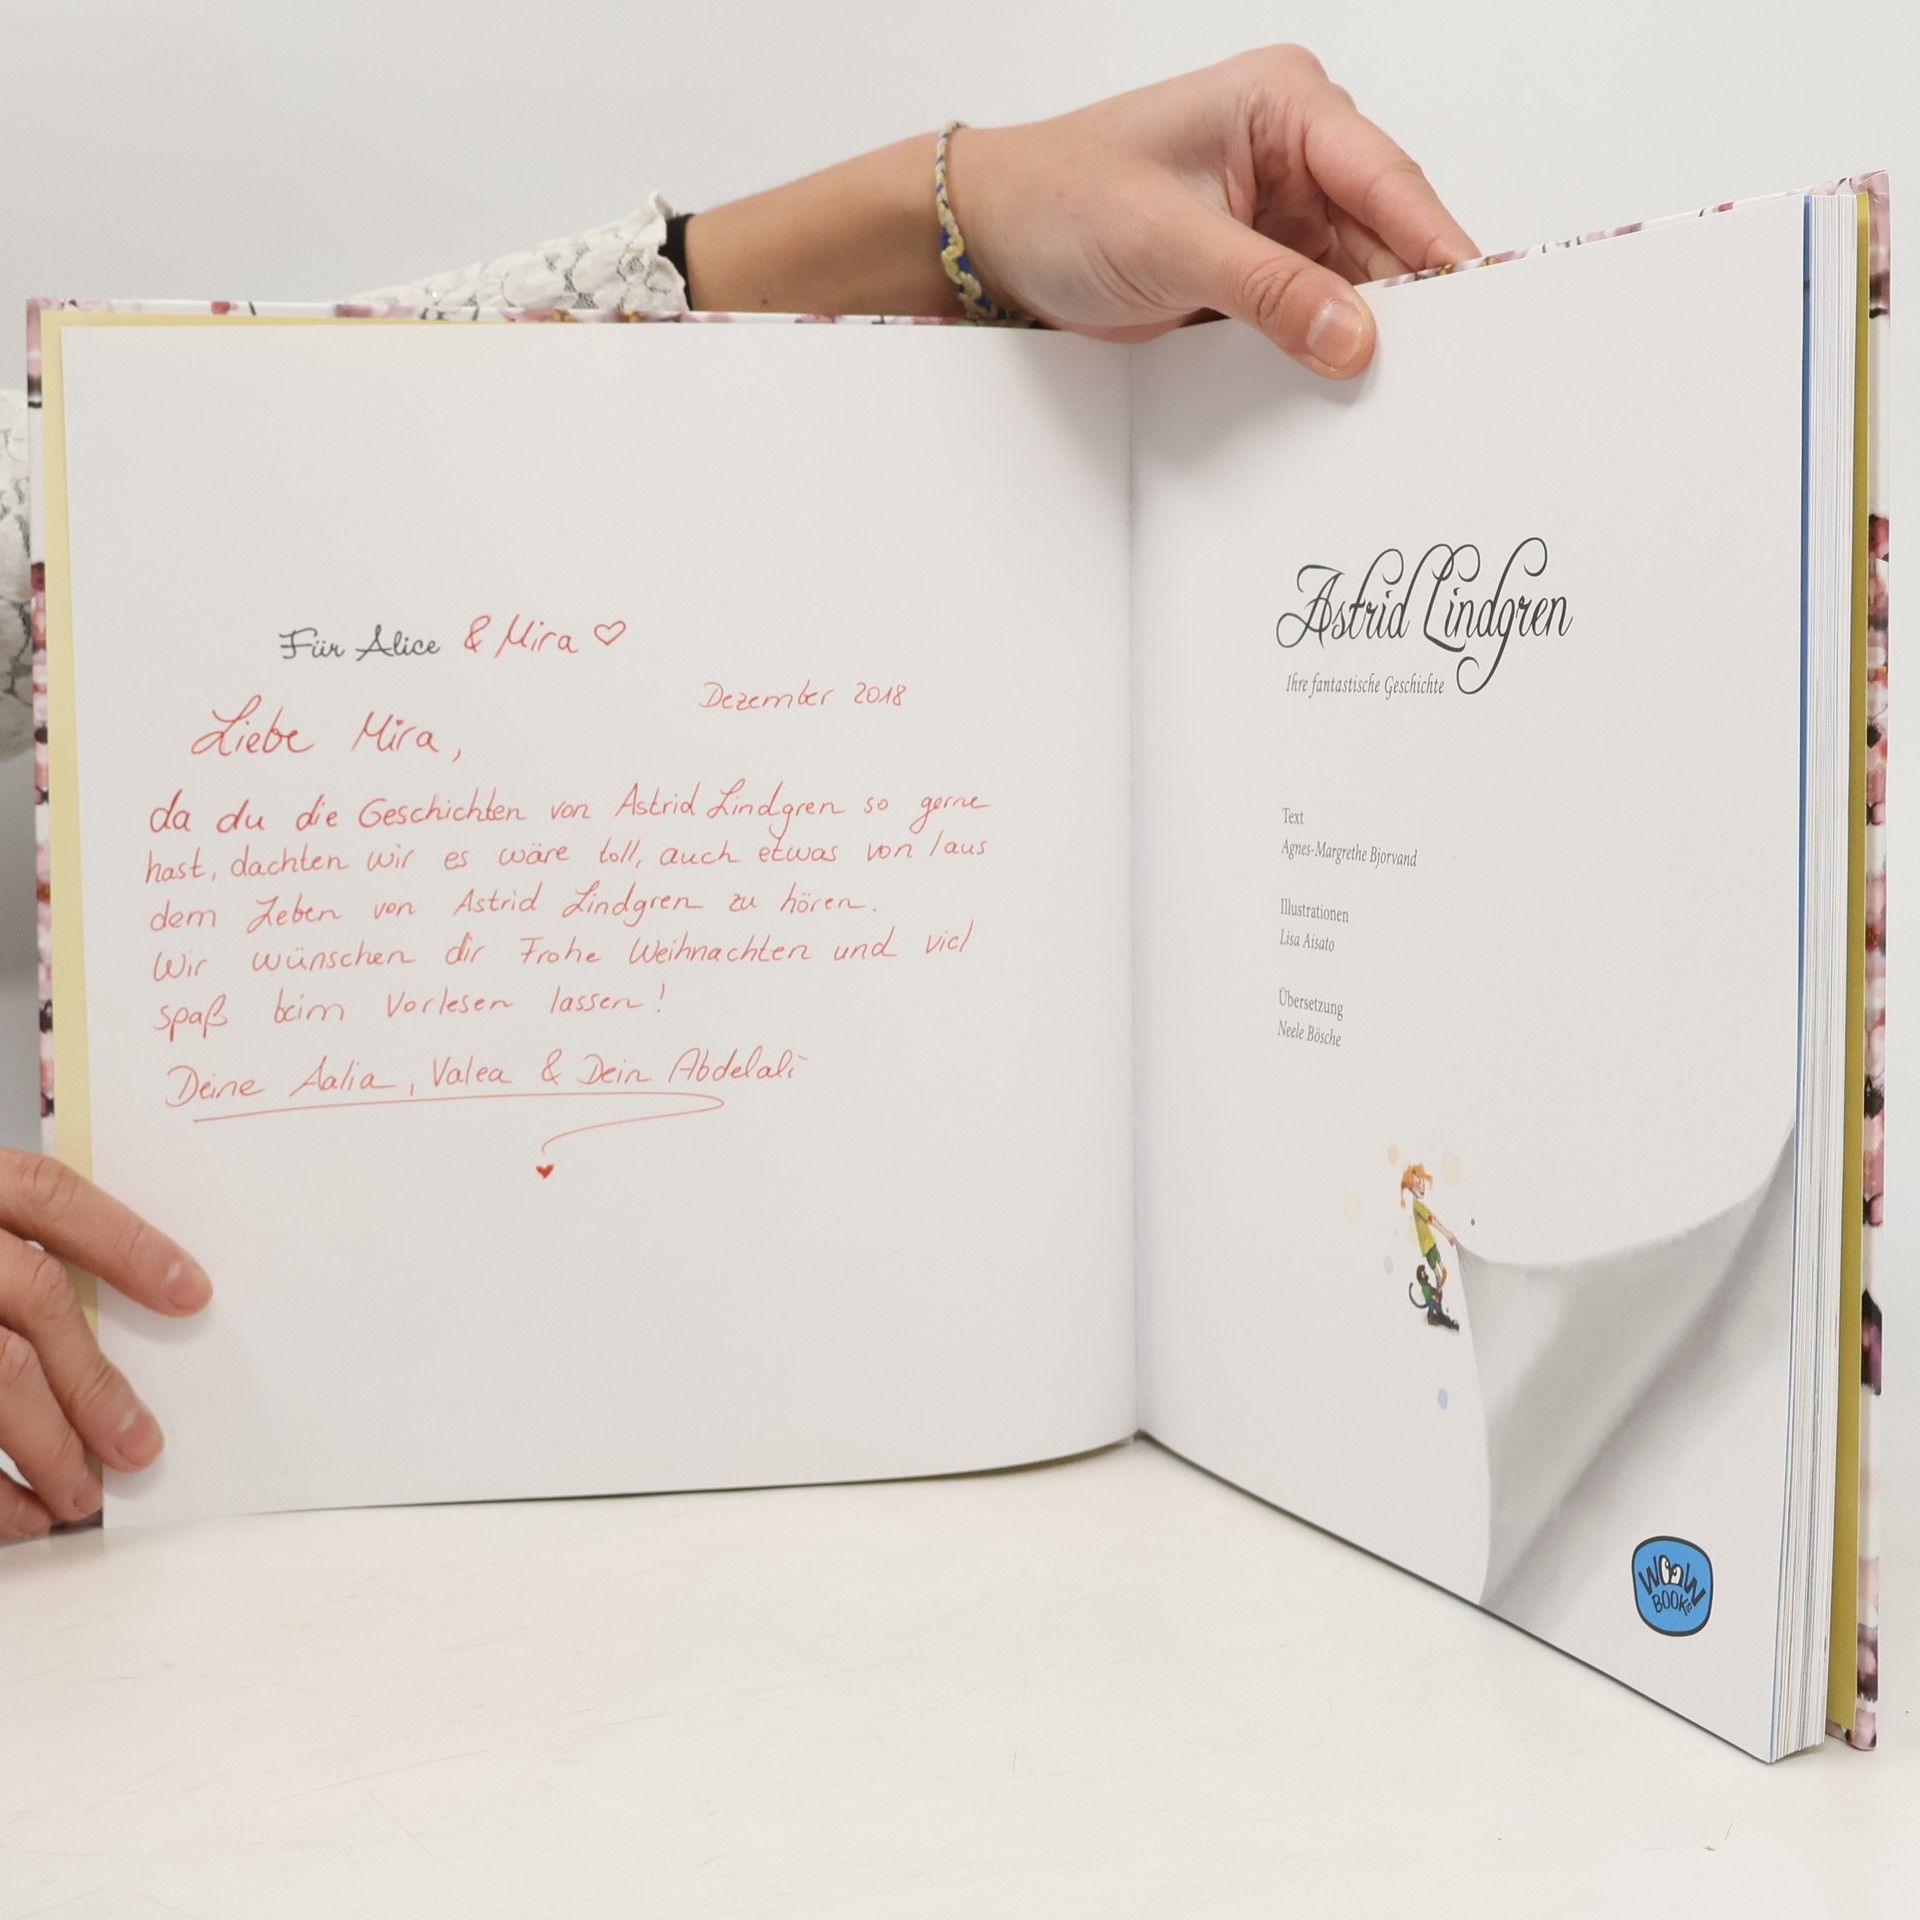 Für Alice & Mira ♡
Dezember 2018
Liebe Mira,
da du die Geschichten von Astrid Lindgren so gerne
hast, dachten wir es wäre toll, auch etwas von/aus
dem Leben von Astrid Lindgren zu hören.
Wir wünschen dir Frohe Weihnachten und viel
spaß beim Vorlesen lassen!
Deine Aalia, Valea & Dein Abdelali
Astrid Lindgren
Ihre fantastische Geschichte
Text
Agnes-Margrethe Bjorvand
Illustrationen
Lisa Aisato
Übersetzung
Neele Bösche
WOOW
BOOKS